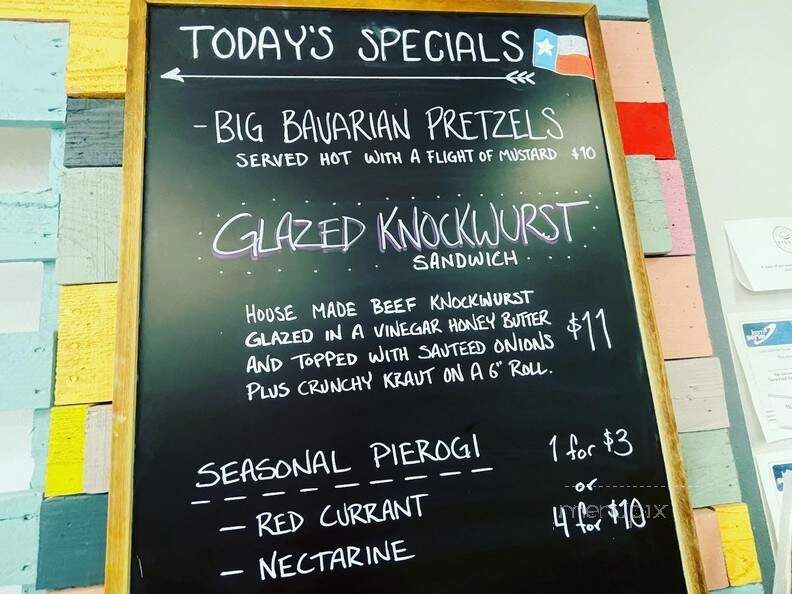 TODAY'S SPECIALS
- BIG BAVARIAN PRETZELS
SERVED HOT WITH A FLIGHT OF MUSTARD $10
GLAZED KNOCKWURST
SANDWICH
HOUSE MADE BEEF KNOCKWURST
GLAZED IN A VINEGAR HONEY BUTTER
AND TOPPED WITH SAUTEED ONIONS
PLUS CRUNCHY KRAUT ON A 6" ROLL.
$11
SEASONAL PIEROGI
- RED CURRANT
- NECTARINE
1 for $3
or
4 for $10
menupix